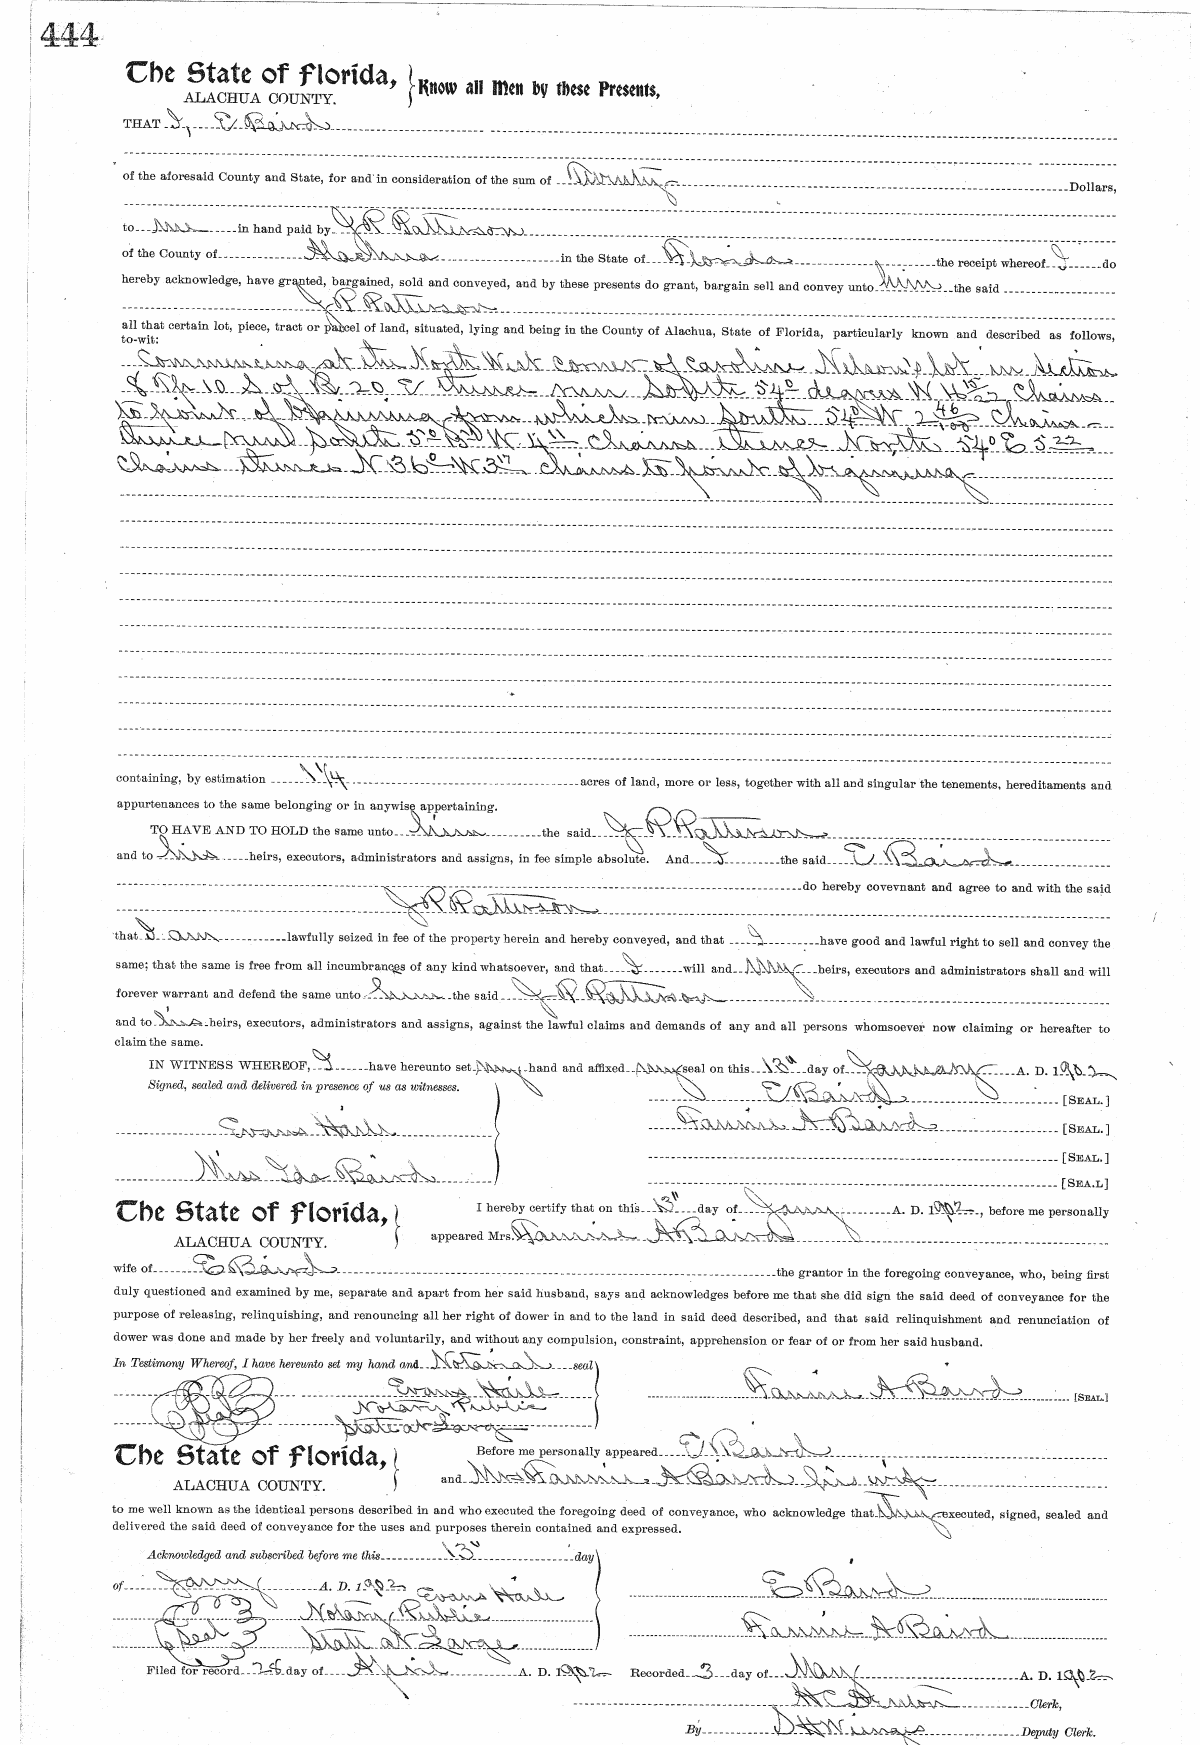 444
The State of Florida, Know all Men by these Presents,
ALACHUA COUNTY.
THAT I, E Baird
of the aforesaid County and State, for and in consideration of the sum of Twenty Dollars,
to me in hand paid by J R Patterson
of the County of Alachua in the State of Florida the receipt whereof I do
hereby acknowledge, have granted, bargained, sold and conveyed, and by these presents do grant, bargain sell and convey unto him the said
J R Patterson
all that certain lot, piece, tract or parcel of land, situated, lying and being in the County of Alachua, State of Florida, particularly known and described as follows,
to-wit:
Commencing at the North West corner of Caroline Nelson's lot in Section
8 Tp 10 S of R 20 E thence run South 54° degrees W Chains
to point of beginning from which run South 54° W 2 46/100 Chains
thence run South W 4 11 chains thence North 54° E 5 22
chains thence N 36° W 3 17 chains to point of beginning
containing, by estimation 1 1/4 acres of land, more or less, together with all and singular the tenements, hereditaments and
appurtenances to the same belonging or in anywise appertaining.
TO HAVE AND TO HOLD the same unto him the said J R Patterson
and to his heirs, executors, administrators and assigns, in fee simple absolute. And I the said E Baird
do hereby covevnant and agree to and with the said
J R Patterson
that I am lawfully seized in fee of the property herein and hereby conveyed, and that I have good and lawful right to sell and convey the
same; that the same is free from all incumbrances of any kind whatsoever, and that I will and my heirs, executors and administrators shall and will
forever warrant and defend the same unto him the said J R Patterson
and to his heirs, executors, administrators and assigns, against the lawful claims and demands of any and all persons whomsoever now claiming or hereafter to
claim the same.
IN WITNESS WHEREOF, I have hereunto set my hand and affixed my seal on this 13" day of January A. D. 1902
Signed, sealed and delivered in presence of us as witnesses.
E Baird [SEAL.]
Evans Haile Fannie A Baird [SEAL.]
[SEAL.]
Miss Ida Baird [SEA.L]
The State of Florida, I hereby certify that on this 13" day of Jany A. D. 1902, before me personally
ALACHUA COUNTY. appeared Mrs. Fannie A Baird
wife of E Baird the grantor in the foregoing conveyance, who, being first
duly questioned and examined by me, separate and apart from her said husband, says and acknowledges before me that she did sign the said deed of conveyance for the
purpose of releasing, relinquishing, and renouncing all her right of dower in and to the land in said deed described, and that said relinquishment and renunciation of
dower was done and made by her freely and voluntarily, and without any compulsion, constraint, apprehension or fear of or from her said husband.
In Testimony Whereof, I have hereunto set my hand and Notarial seal
Evans Haile Fannie A Baird [SEAL.]
Seal Notary Public
State at Large
The State of Florida, Before me personally appeared E Baird
ALACHUA COUNTY. and Mrs Fannie A Baird his wife
to me well known as the identical persons described in and who executed the foregoing deed of conveyance, who acknowledge that They executed, signed, sealed and
delivered the said deed of conveyance for the uses and purposes therein contained and expressed.
Acknowledged and subscribed before me this 13" day
of Jany A. D. 1902 Evans Haile E Baird
Notary Public
Seal State at Large Fannie A Baird
Filed for record 26 day of April A. D. 1902 Recorded 3 day of May A. D. 1902
H C Denton Clerk,
By Deputy Clerk.